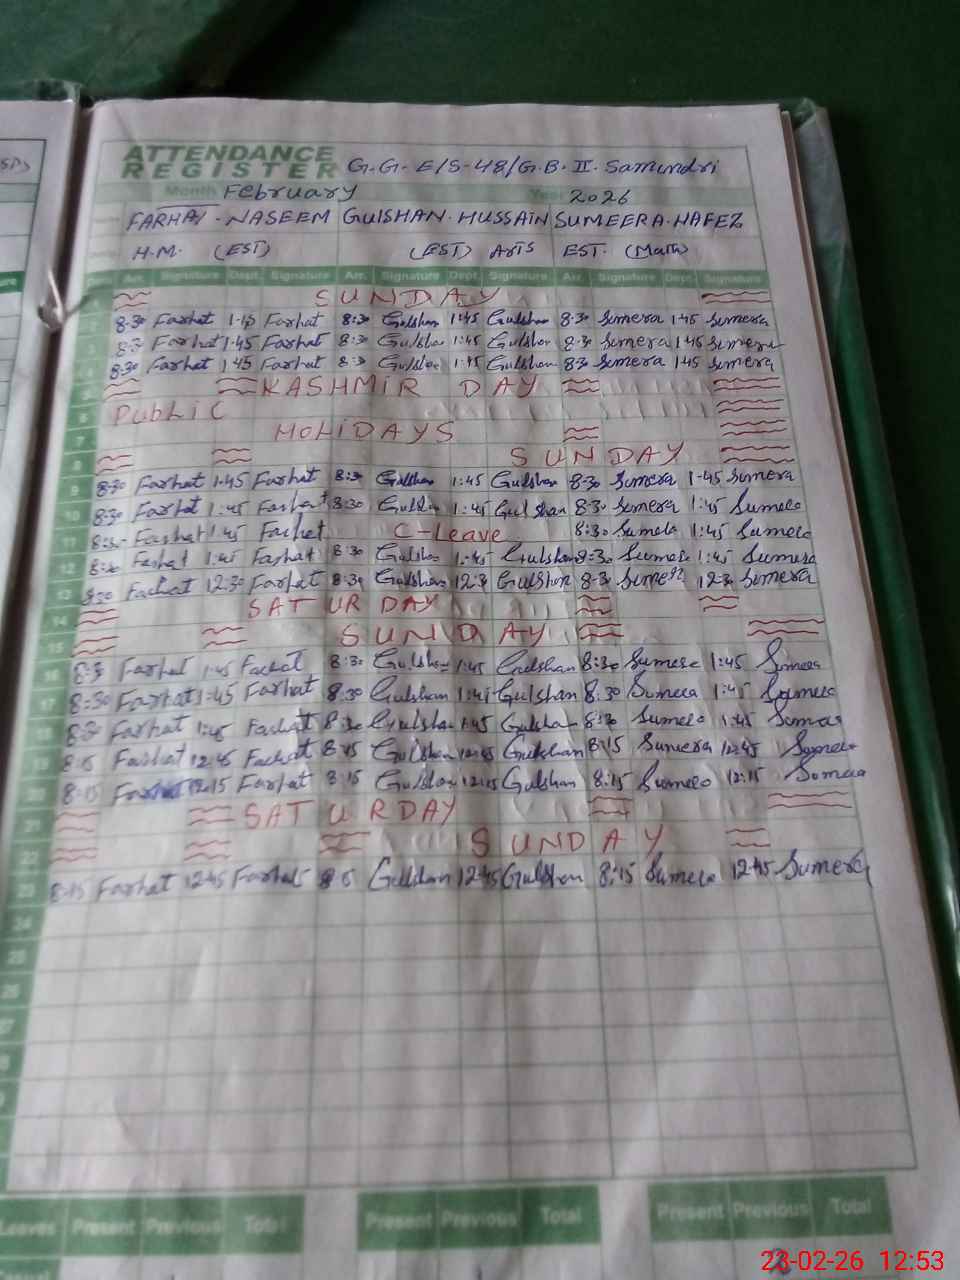 ATTENDANCE
REGISTER G.G. E/S-48/G.B. II. Samundri
Month February Year 2026
FARHAT - NASEEM GULSHAN. HUSSAIN SUMEERA. HAFEZ
H.M. (EST) (EST) ARTS EST. (Math)
Arr. Signature Dept. Signature Arr. Signature Dept. Signature Arr. Signature Dept. Signature
SUNDAY
2 8:30 Farhat Farhat 8:30 Gulshan 1:45 Gulshan 8:30 Sumera 1:45 Sumera
3 8:30 Farhat 1:45 Farhat 8:30 Gulshan 1:45 Gulshan 8:30 Sumera 1:45 Sumera
8:30 Farhat 1:45 Farhat 8:30 Gulshan 1:45 Gulshan 8:30 Sumera 1:45 Sumera
5 KASHMIR DAY
6 PubLiC
7 HOLiDAYS
8 SUNDAY
9 8:30 Farhat 1:45 Farhat 8:30 Gulshan 1:45 Gulshan 8:30 Sumera 1:45 Sumera
10 8:30 Farhat 1:45 Farhat 8:30 Gulshan 1:45 Gulshan 8:30 Sumera 1:45 Sumera
11 8:30 Farhat 1:45 Farhat C-Leave 8:30 Sumera 1:45 Sumera
12 8:30 Farhat 1:45 Farhat 8:30 Gulshan 1:45 Gulshan 8:30 Sumera 1:45 Sumera
13 8:30 Farhat 12:30 Farhat 8:30 Gulshan 12:30 Gulshan 8:30 Sumera 12:30 Sumera
14 SATURDAY
15 SUNDAY
16 8:30 Farhat 1:45 Farhat 8:30 Gulshan 1:45 Gulshan 8:30 Sumera 1:45 Sumera
17 8:30 Farhat 1:45 Farhat 8:30 Gulshan 1:45 Gulshan 8:30 Sumera 1:45 Sumera
18 8:30 Farhat 1:45 Farhat 8:30 Gulshan 1:45 Gulshan 8:30 Sumera 1:45 Sumera
8:15 Farhat 12:45 Farhat 8:15 Gulshan 12:45 Gulshan 8:15 Sumera 12:45 Sumera
20 8:15 Farhat 12:15 Farhat 8:15 Gulshan 12:15 Gulshan 8:15 Sumera 12:15 Sumera
21 SATURDAY
22 SUNDAY
23 8:15 Farhat 12:45 Farhat Gulshan 12:45 Gulshan 8:15 Sumera 12:45 Sumera
24
25
26
Leaves Present Previous Total Present Previous Total Present Previous Total
23-02-26 12:53